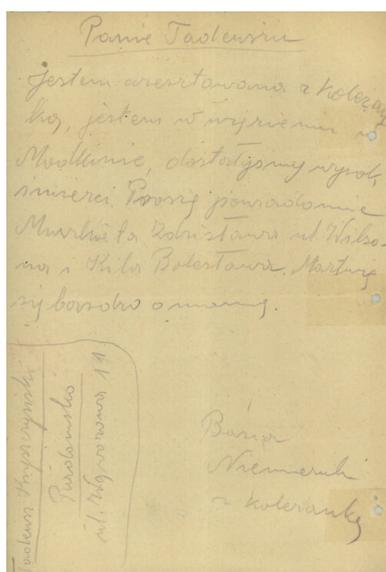 Panie Tadeuszu
Jestem aresztowana z koleżan
ką, jestem w więzieniu w
Modlinie, dostałyśmy wyrok
śmierci. Proszę powiadomić
Zdzisława ul. Wilso-
na i Kila Bolesława. Martwię
się bardzo o mamę.
Basia
Niemeruk
z koleżanką
Tadeusz
ul. 11